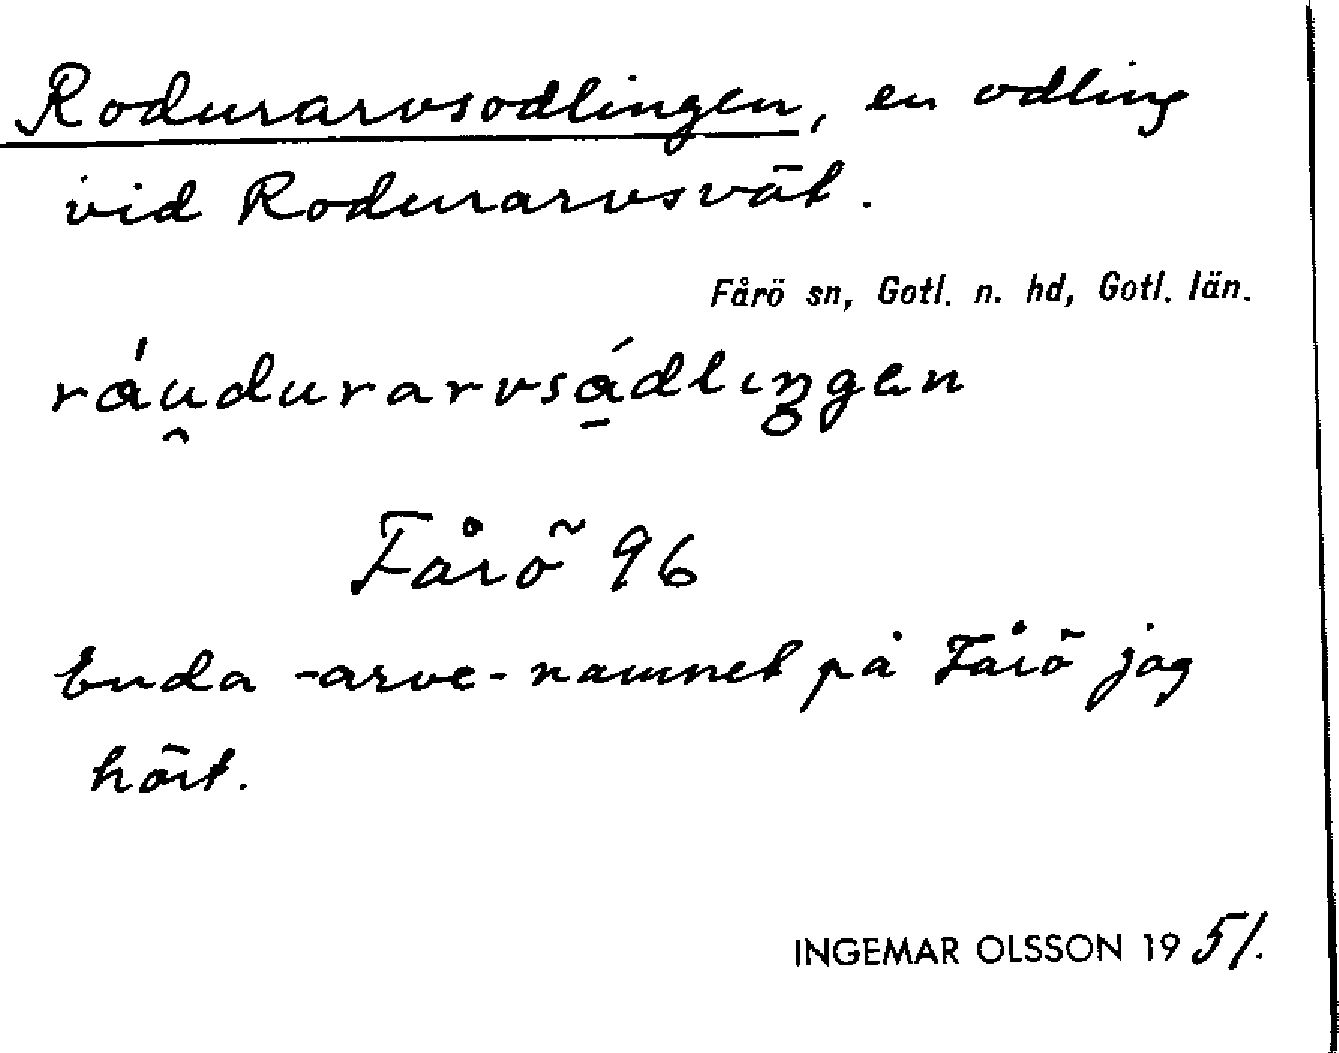 Rodurarvsodlingen, en odling
vid Rodurarvsvät.
Fårö sn, Gotl. n. hd, Gotl. län.
ráu̯durarvsá̱dlıŋgen
Fårö 96
Enda -arve-namnet på Fårö jag
hört.
INGEMAR OLSSON 1951.